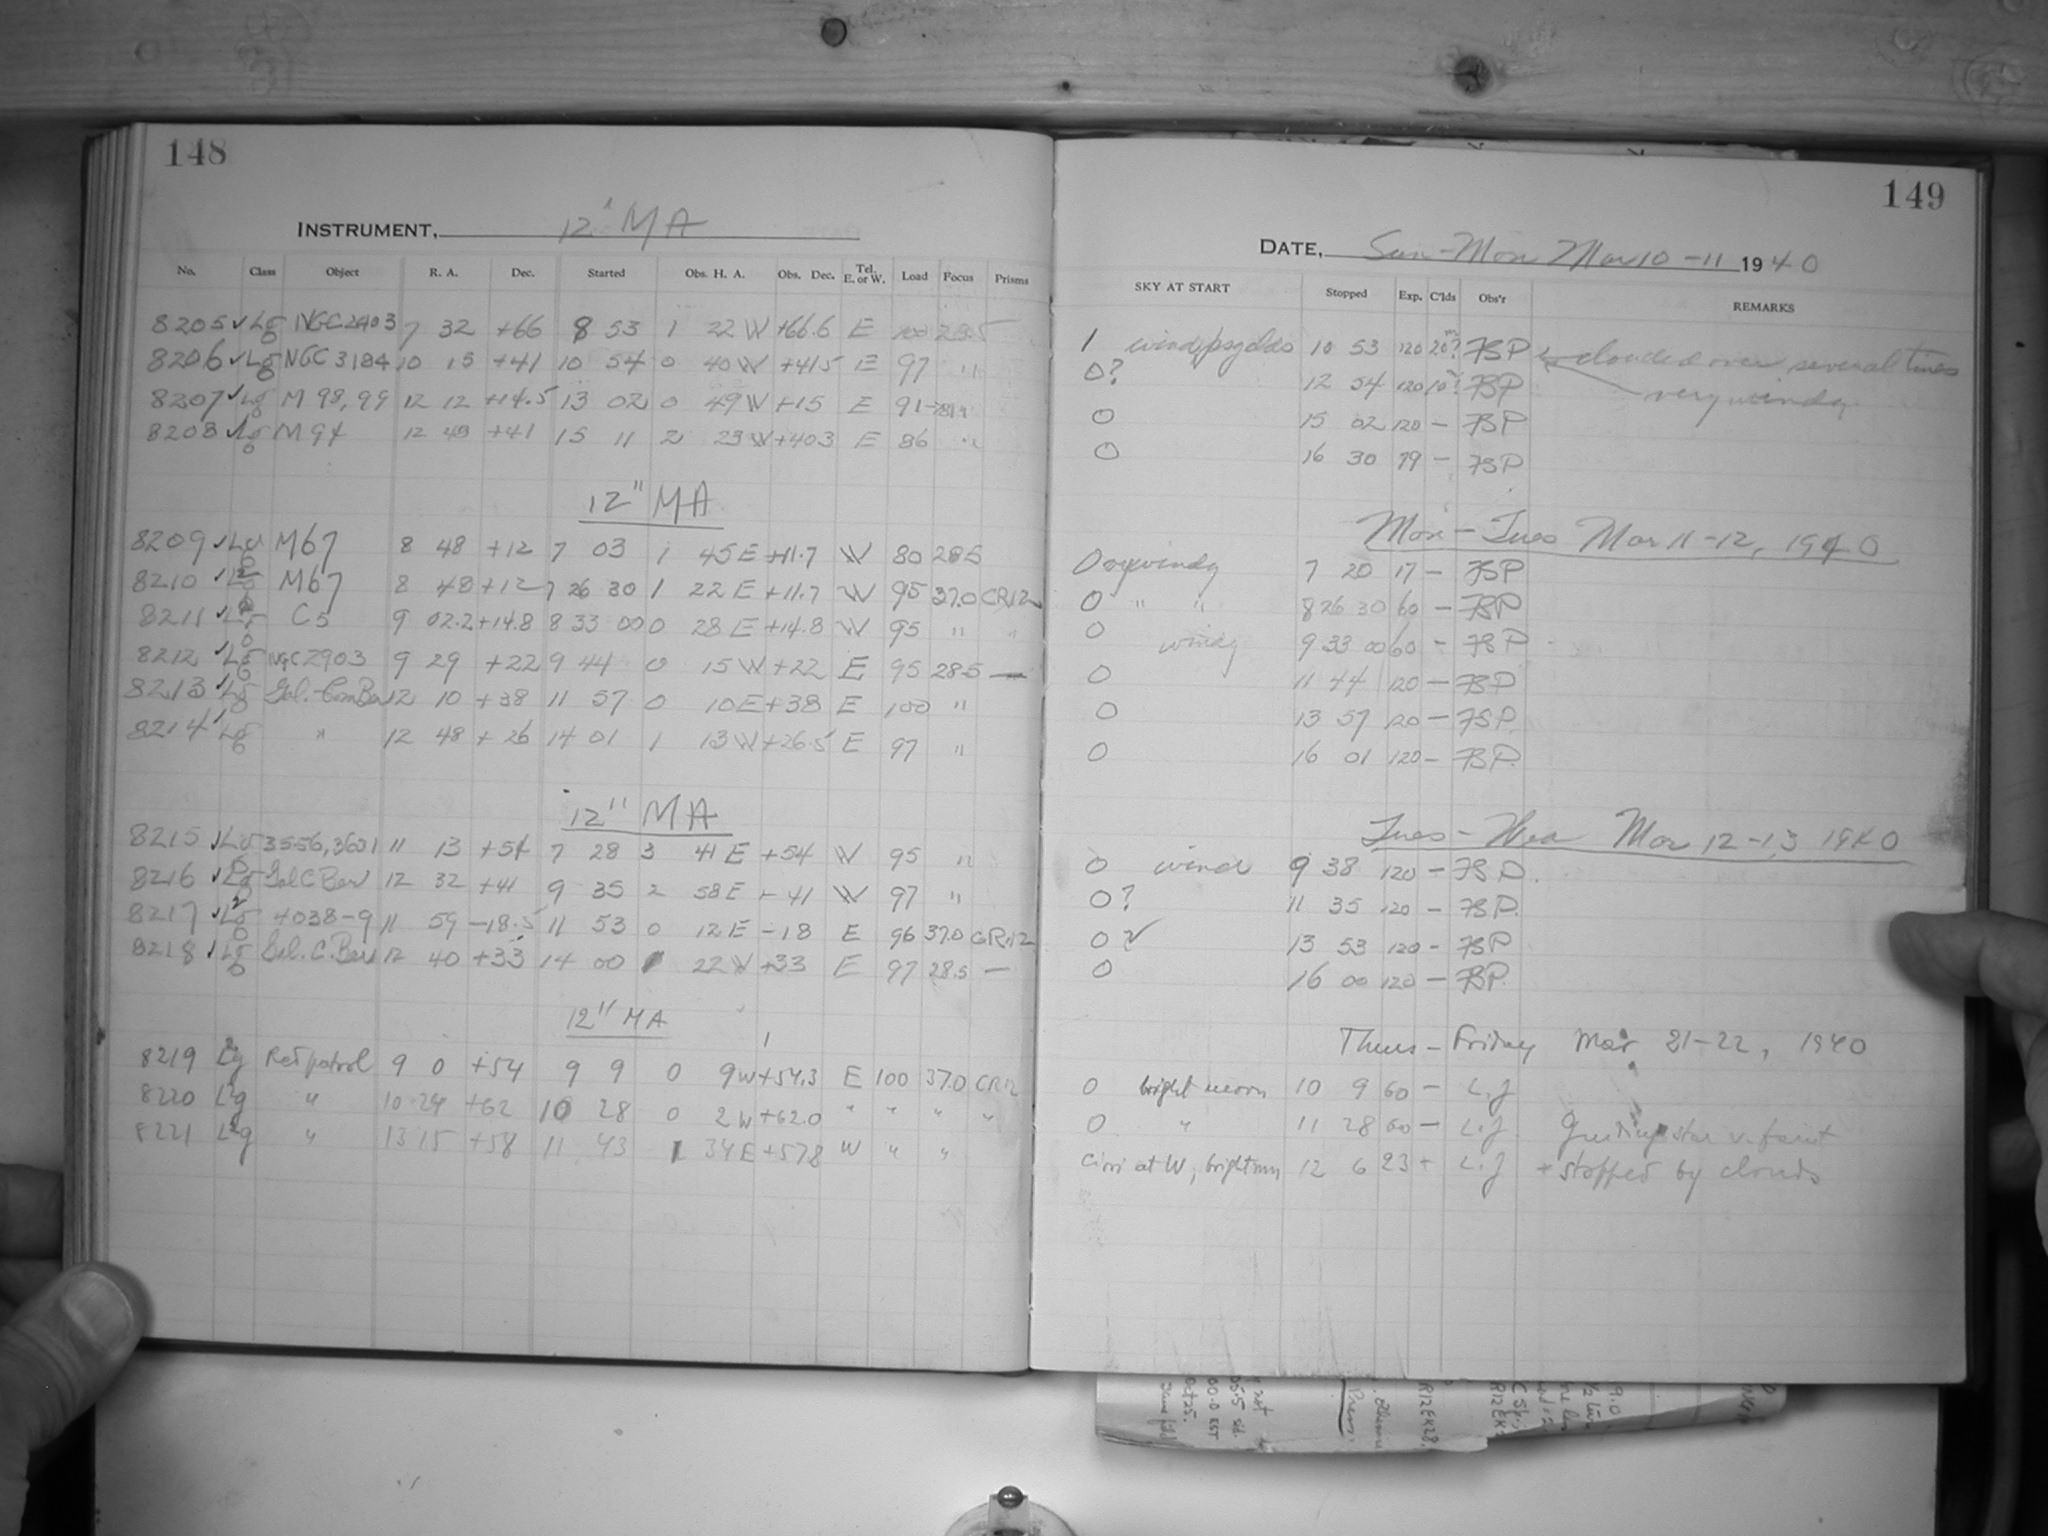 148
INSTRUMENT, 12" MA
No. Class Object R. A. Dec. Started Obs. H. A. Obs. Dec. Tel. E. or W. Load Focus Prisms
8205 ✓ NGC 2403 7 32 +66 8 53 1 22 W +66.6 E 100 28.5
8206 ✓ NGC 3184 10 15 +41 10 54 0 40 W +41.5 E 97 "
8207 ✓ M 98, 99 12 12 +14.5 13 02 0 49 W +15 E 91
8208 ✓ M 94 12 48 +41 15 11 2 23 W +40.3 E 86 "
12" MA
8209 ✓ M67 8 48 +12 7 03 1 45 E +11.7 W 80 28.5
8210 ✓ M67 8 48 +12 7 26 30 1 22 E +11.7 W 95 37.0 CR12
8211 ✓ C5 9 02.2 +14.8 8 33 00 0 28 E +14.8 W 95 " "
8212 ✓ NGC 2903 9 29 +22 9 44 0 15 W +22 E 95 28.5 —
8213 ✓ Gal.-Com Ber 12 10 +38 11 57 0 10 E +38 E 100 "
8214 ✓ " 12 48 +26 14 01 1 13 W +26.5 E 97 "
12" MA
8215 ✓ 3556, 3631 11 13 +54 7 28 3 41 E +54 W 95 "
8216 ✓ Gal C Ber 12 32 +41 9 35 2 58 E +41 W 97 "
8217 ✓ 4038-9 11 59 -18.5 11 53 0 12 E -18 E 96 37.0 CR12
8218 ✓ Gal. C. Ber 12 40 +33 14 00 1 22 W +33 E 97 28.5 —
12" MA
8219 Ret patrol 9 0 +54 9 9 0 9 W +54.3 E 100 37.0 CR12
8220 " 10 24 +62 10 28 0 2 W +62.0 " " " "
8221 " 13 15 +58 11 43 1 34 E +57.8 W " "
149
DATE, Sun-Mon Mar 10-11 1940
SKY AT START Stopped Exp. C'lds Obs'r REMARKS
1 wind 10 53 120 20? FSP clouded over several times
0? 12 54 120 10? FSP very windy
0 15 02 120 — FSP
0 16 30 79 — FSP
Mon-Tues Mar 11-12, 1940
0 windy 7 20 17 — FSP
0 " " 8 26 30 60 — FSP
0 windy 9 33 00 60 — FSP
0 11 44 120 — FSP
0 13 57 120 — FSP
0 16 01 120 — FSP
Tues-Wed Mar 12-13 1940
0 wind 9 38 120 — FSP
0? 11 35 120 — FSP
0 13 53 120 — FSP
0 16 00 120 — FSP
Thurs-Friday Mar 21-22, 1940
0 bright moon 10 9 60 — L.J
0 " 11 28 60 — L.J Guiding star v. faint
Cirri at W, bright mn 12 6 23 + L.J + stopped by clouds